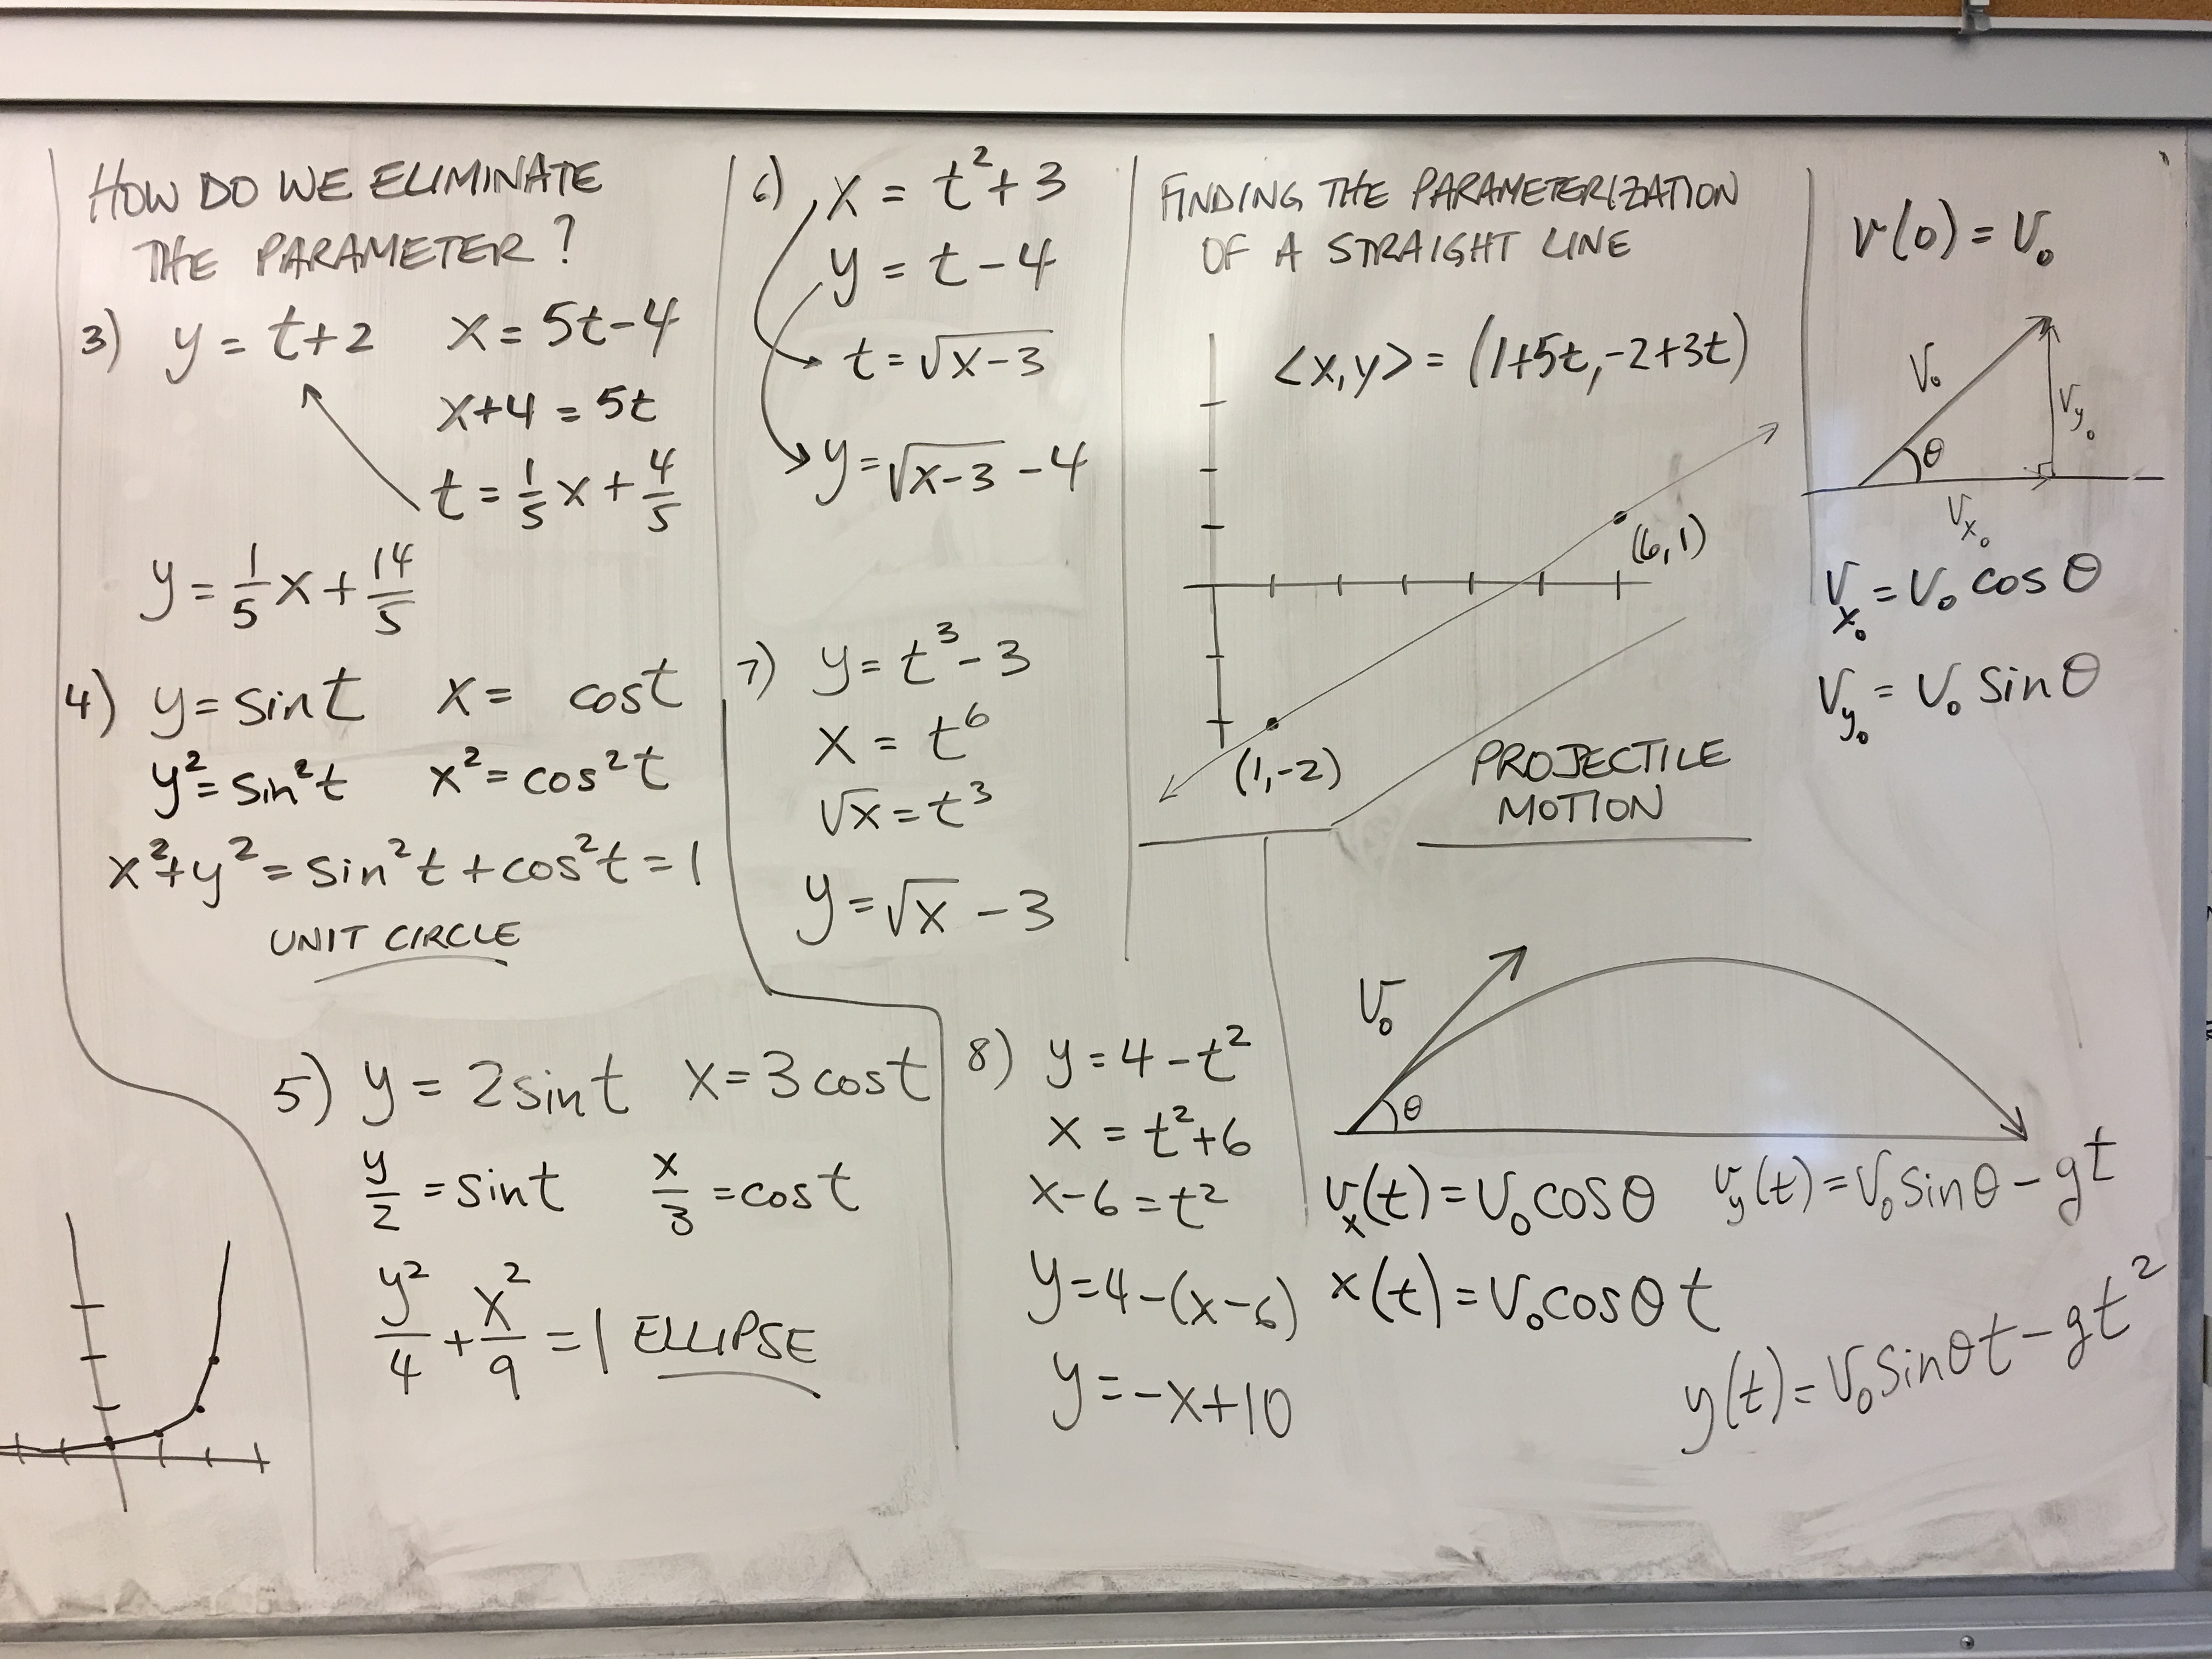 HOW DO WE ELIMINATE
THE PARAMETER?
3) y = t+2 x = 5t-4
x+4 = 5t
t = 1/5 x + 4/5
y = 1/5 x + 14/5
4) y = sin t x = cos t
y² = sin² t x² = cos² t
x² + y² = sin² t + cos² t = 1
UNIT CIRCLE
5) y = 2 sin t x = 3 cos t
y/2 = sin t x/3 = cos t
y²/4 + x²/9 = 1 ELLIPSE
6) x = t² + 3
y = t - 4
t = √(x-3)
y = √(x-3) - 4
7) y = t³ - 3
x = t⁶
√x = t³
y = √x - 3
8) y = 4 - t²
x = t² + 6
x - 6 = t²
y = 4 - (x-6)
y = -x + 10
FINDING THE PARAMETERIZATION
OF A STRAIGHT LINE
<x,y> = (1+5t, -2+3t)
(6,1)
(1,-2)
PROJECTILE
MOTION
v(0) = V₀
V₀
V_y₀
θ
V_x₀
V_x₀ = V₀ cos θ
V_y₀ = V₀ sin θ
V₀
θ
v_x(t) = V₀ cos θ v_y(t) = V₀ sin θ - gt
x(t) = V₀ cos θ t
y(t) = V₀ sin θ t - gt²